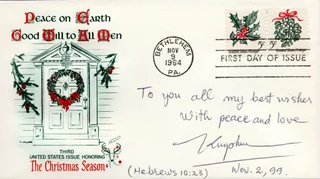 Peace on Earth
Good Will to All Men
BETHLEHEM
NOV
9
1964
PA.
5¢ 5¢
FIRST DAY OF ISSUE
To you all my best wishes
With peace and love
(Hebrews 10:23)
Nov. 2, 99.
THIRD
UNITED STATES ISSUE HONORING
The Christmas Season